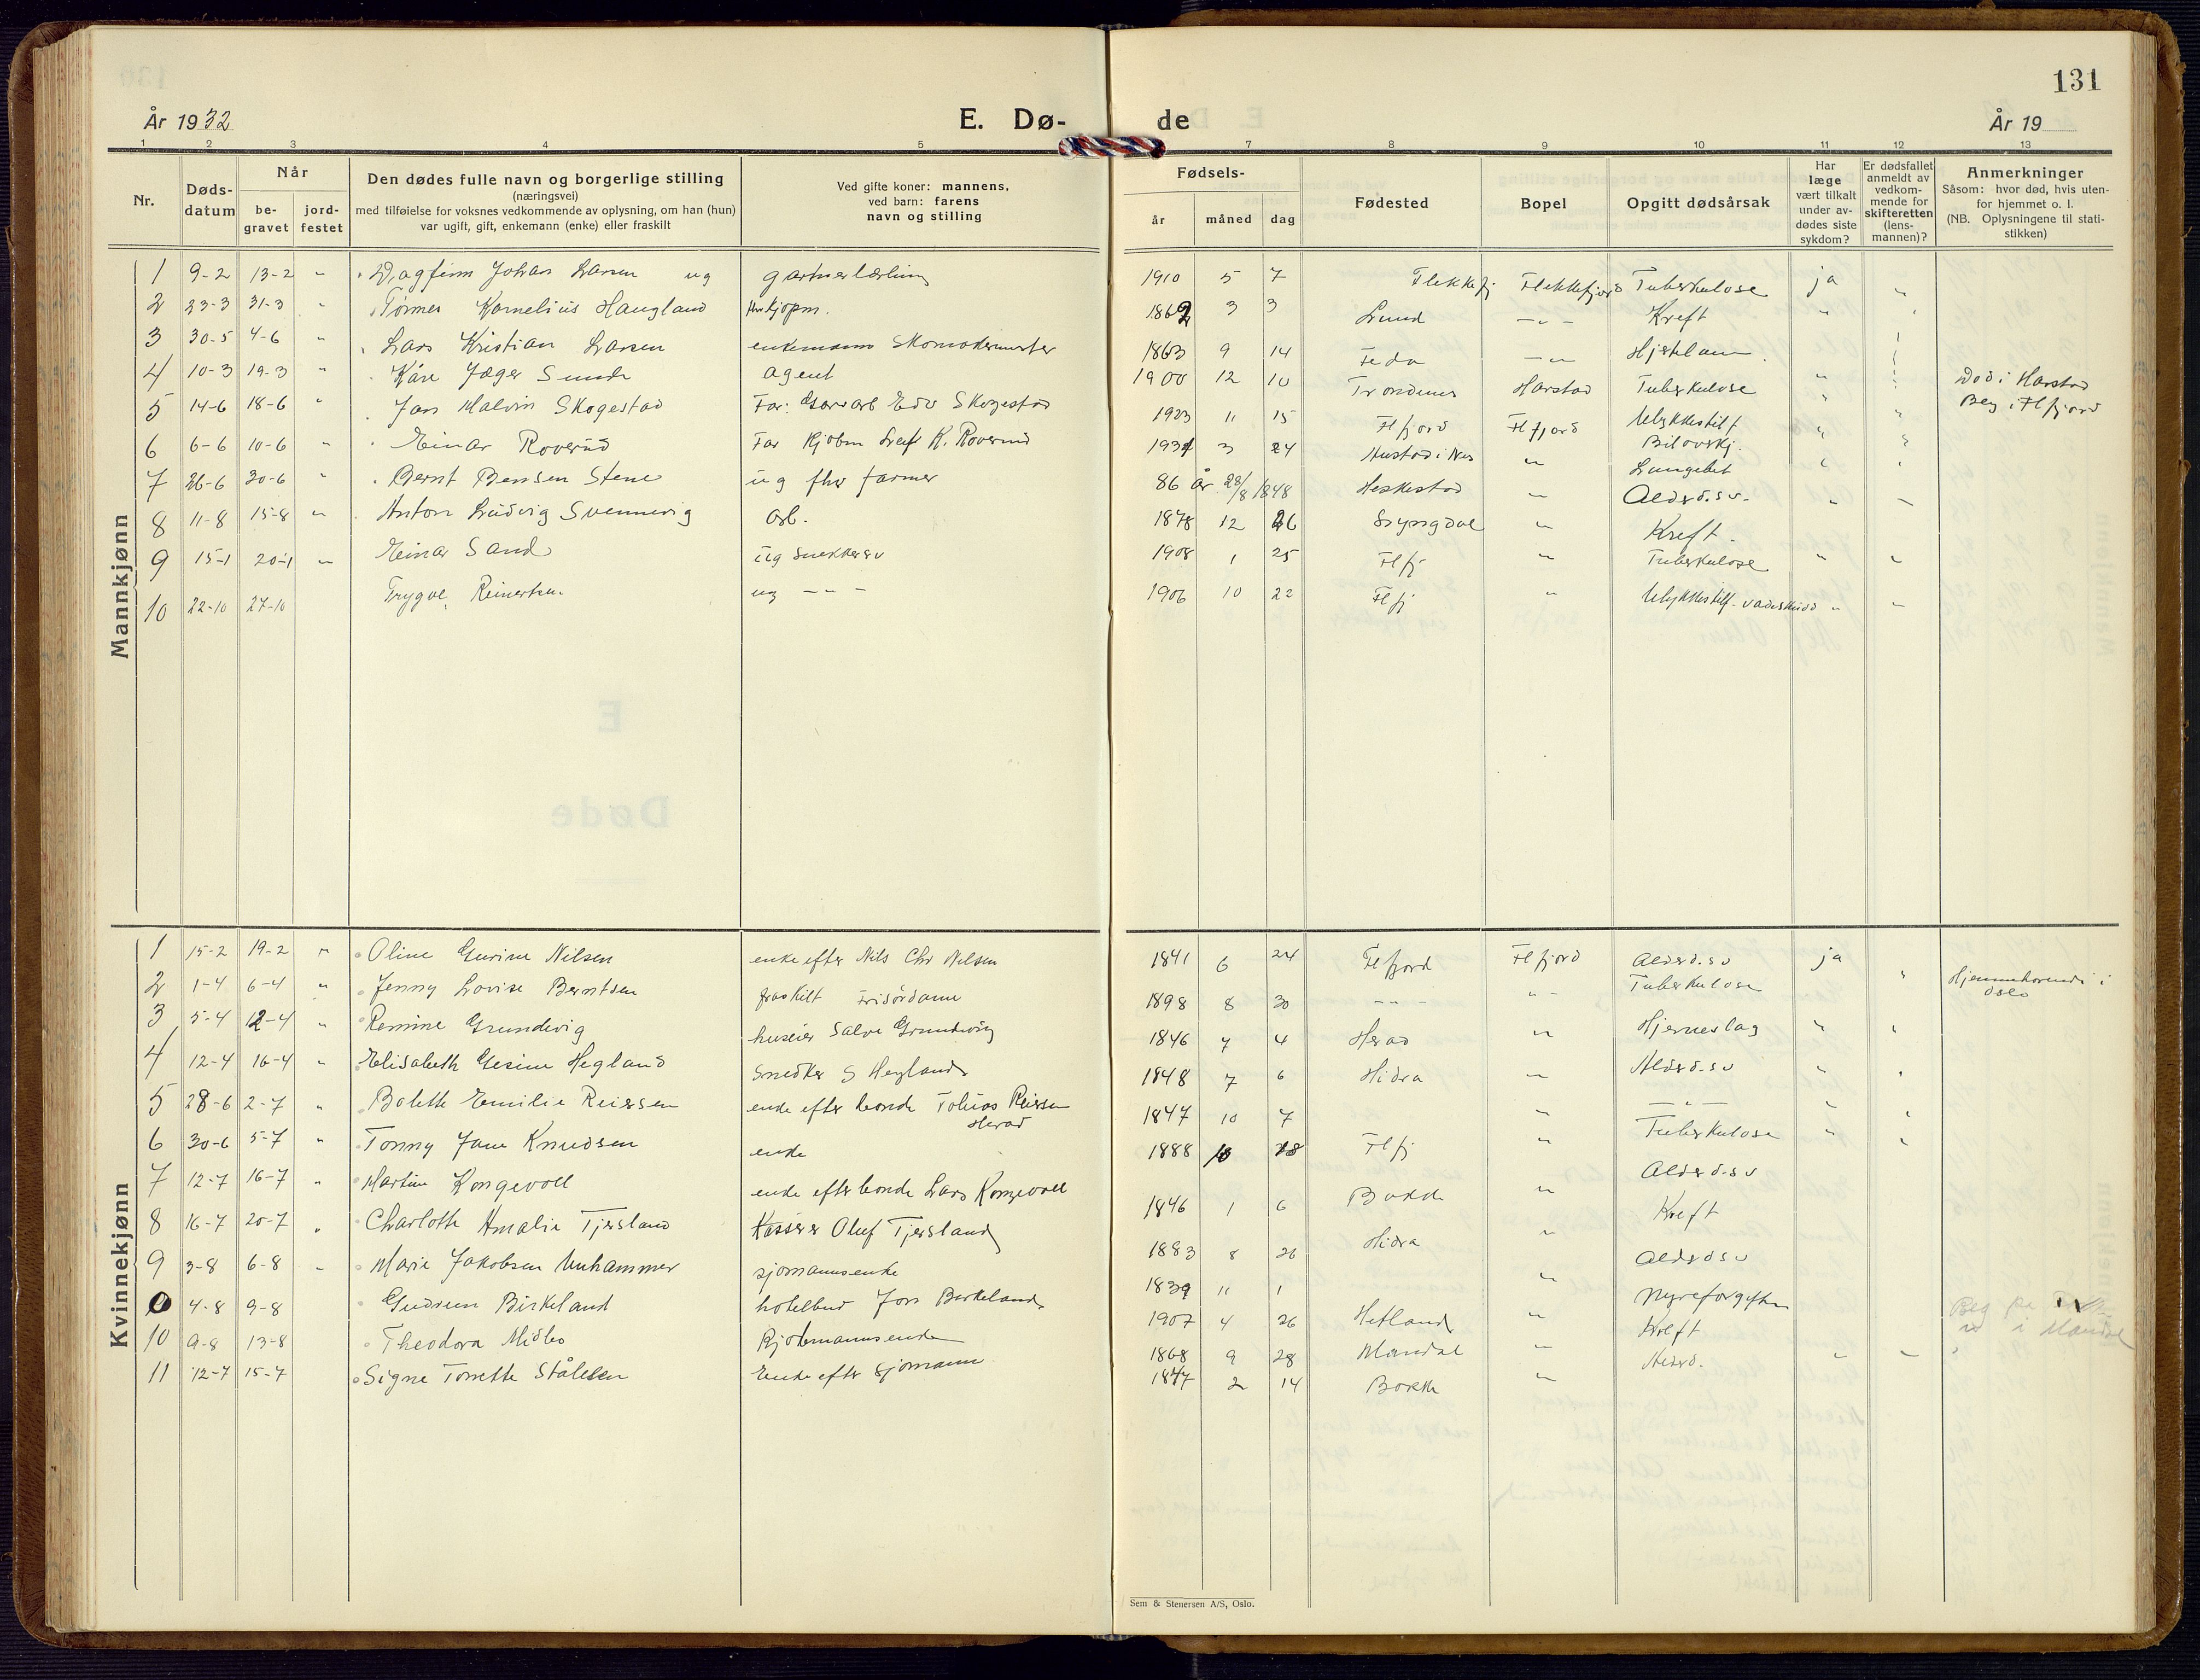 131
År 1932
E. Dø-
de
År 19
1 2 3 4 5 7 8 9 10 11 12 13
Nr.
Døds-
datum
Når
be-
gravet
jord-
festet
Den dødes fulle navn og borgerlige stilling
(næringsvei)
med tilføielse for voksnes vedkommende av oplysning, om han (hun)
var ugift, gift, enkemann (enke) eller fraskilt
Ved gifte koner: mannens,
ved barn: farens
navn og stilling
Fødsels-
år
måned
dag
Fødested
Bopel
Opgitt dødsårsak
Har
læge
vært tilkalt
under av-
dødes siste
sykdom?
Er dødsfallet
anmeldt av
vedkom-
mende for
skifteretten
(lens-
mannen)?
Anmerkninger
Såsom: hvor død, hvis uten-
for hjemmet o. l.
(NB. Oplysningene til stati-
stikken)
Mannkjønn
1 9-2 13-2 " Dagfinn Johan Larsen ug gartnerlærling 1910 5 7 Flekkefj Flekkefjord Tuberkulose ja "
2 23-3 31-3 " Tørnes Kornelius Haugland kjøpm. 1862 3 3 Lund -"- Kreft "
3 30-5 4-6 " Lars Kristian Larsen enkemann Skomakermester 1863 9 14 Feda -"- Hjertelam.
4 10-3 19-3 " Kåre Jæger Sunde agent 1900 12 10 Trondenes Harstad Tuberkulose " Død i Harstad
Beg i Flfjord
5 14-6 18-6 " Jan Malvin Skogestad Far: Garvarb Edv Skogestad 1923 11 15 Flfjord Flfjord Ulykkestilf
Bilovskj.
6 6-6 10-6 " Einar Roverud Far Kjøbm Leif K. Roverud 1931 3 24 Hustad i Nes " Lungebet
7 26-6 30-6 " Bernt Bensen Stene ug fhv farmer 86 år 28/8 1848 Heskestad " Alderd.sv.
8 11-8 15-8 " Anton Ludvig Svennevig Arb. 1878 12 26 Lyngdal " Kreft.
9 15-1 20-1 " Einar Sand ug snekkersv 1908 1 25 Flfj " Tuberkulose "
10 22-10 27-10 Trygve Reinertsen ug -"- 1906 10 22 Flfj " Ulykkestilf. vadeskudd "
Kvinnekjønn
1 15-2 19-2 " Oline Gurine Nilsen enke efter Nils Chr Nilsen 1841 6 24 Flfjord Flfjord Alderd.sv ja
2 1-4 6-4 " Jenny Lovise Berntsen fraskilt Frisørdame 1898 8 30 -"- " Tuberkulose " Hjemmehørende i
Oslo
3 5-4 12-4 " Remine Grundevig huseier Salve Grundevig 1846 7 4 Herad " Hjerneslag "
4 12-4 16-4 " Elisabeth Gesine Hegland Snedker S Hegland 1848 7 6 Hidra " Alderd.sv "
5 28-6 2-7 " Bolette Emilie Reiersen enke efter bonde Tobias Reiersen
Herad 1847 10 7 " -"- "
6 30-6 5-7 " Tonny Jane Knudsen enke 1888 10 28 Flfj " Tuberkulose "
7 12-7 16-7 " Martine Kongevoll enke efter bonde Lars Kongevoll 1846 1 6 Bakke " Alderd.sv
8 16-7 20-7 " Charlotte Amalie Tjersland Kasserer Oluf Tjersland 1883 8 26 Hidra " Kreft
9 3-8 6-8 " Marie Jakobsen Unhammer sjømannsenke 1839 11 1 " Alderdsv
0 4-8 9-8 Gudrun Birkeland hotelbud Jon Birkeland 1907 4 26 Hetland " Nyreforgiftn
10 9-8 13-8 Theodora Midbo Kjøbmannsenke 1868 9 28 Mandal " Kreft Beg i Mandal
11 12-7 15-7 Signe Tonette Stålesen Enke efter sjømann 1847 2 14 Bakke " Alderd. "
Sem & Stenersen A/S, Oslo.